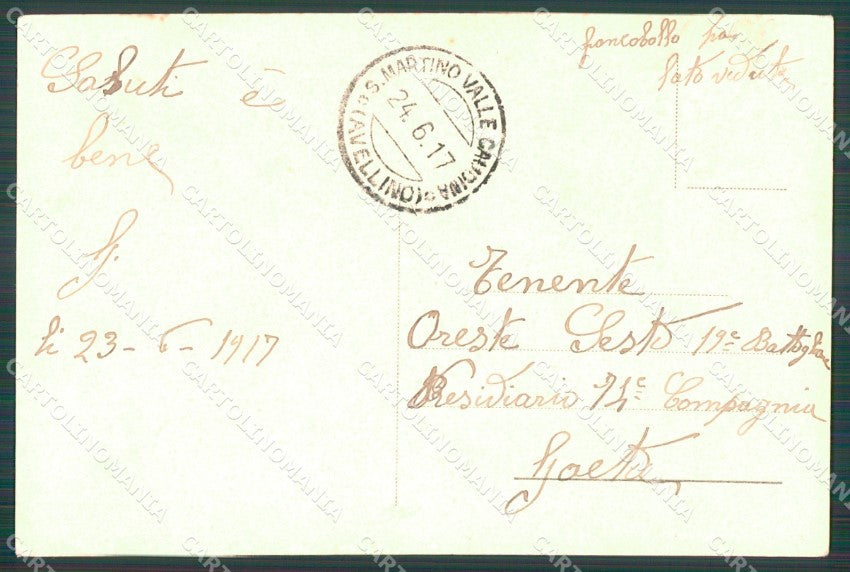 Saluti e
bene
G.
li 23-6-1917
S. MARTINO VALLE CAUDINA
(AVELLINO)
24.6.17
francobollo
lato veduta
Tenente
Oreste Sesto 19° Battaglione
Presidiario 74° Compagnia
Gaeta
CARTOLINOMANIA